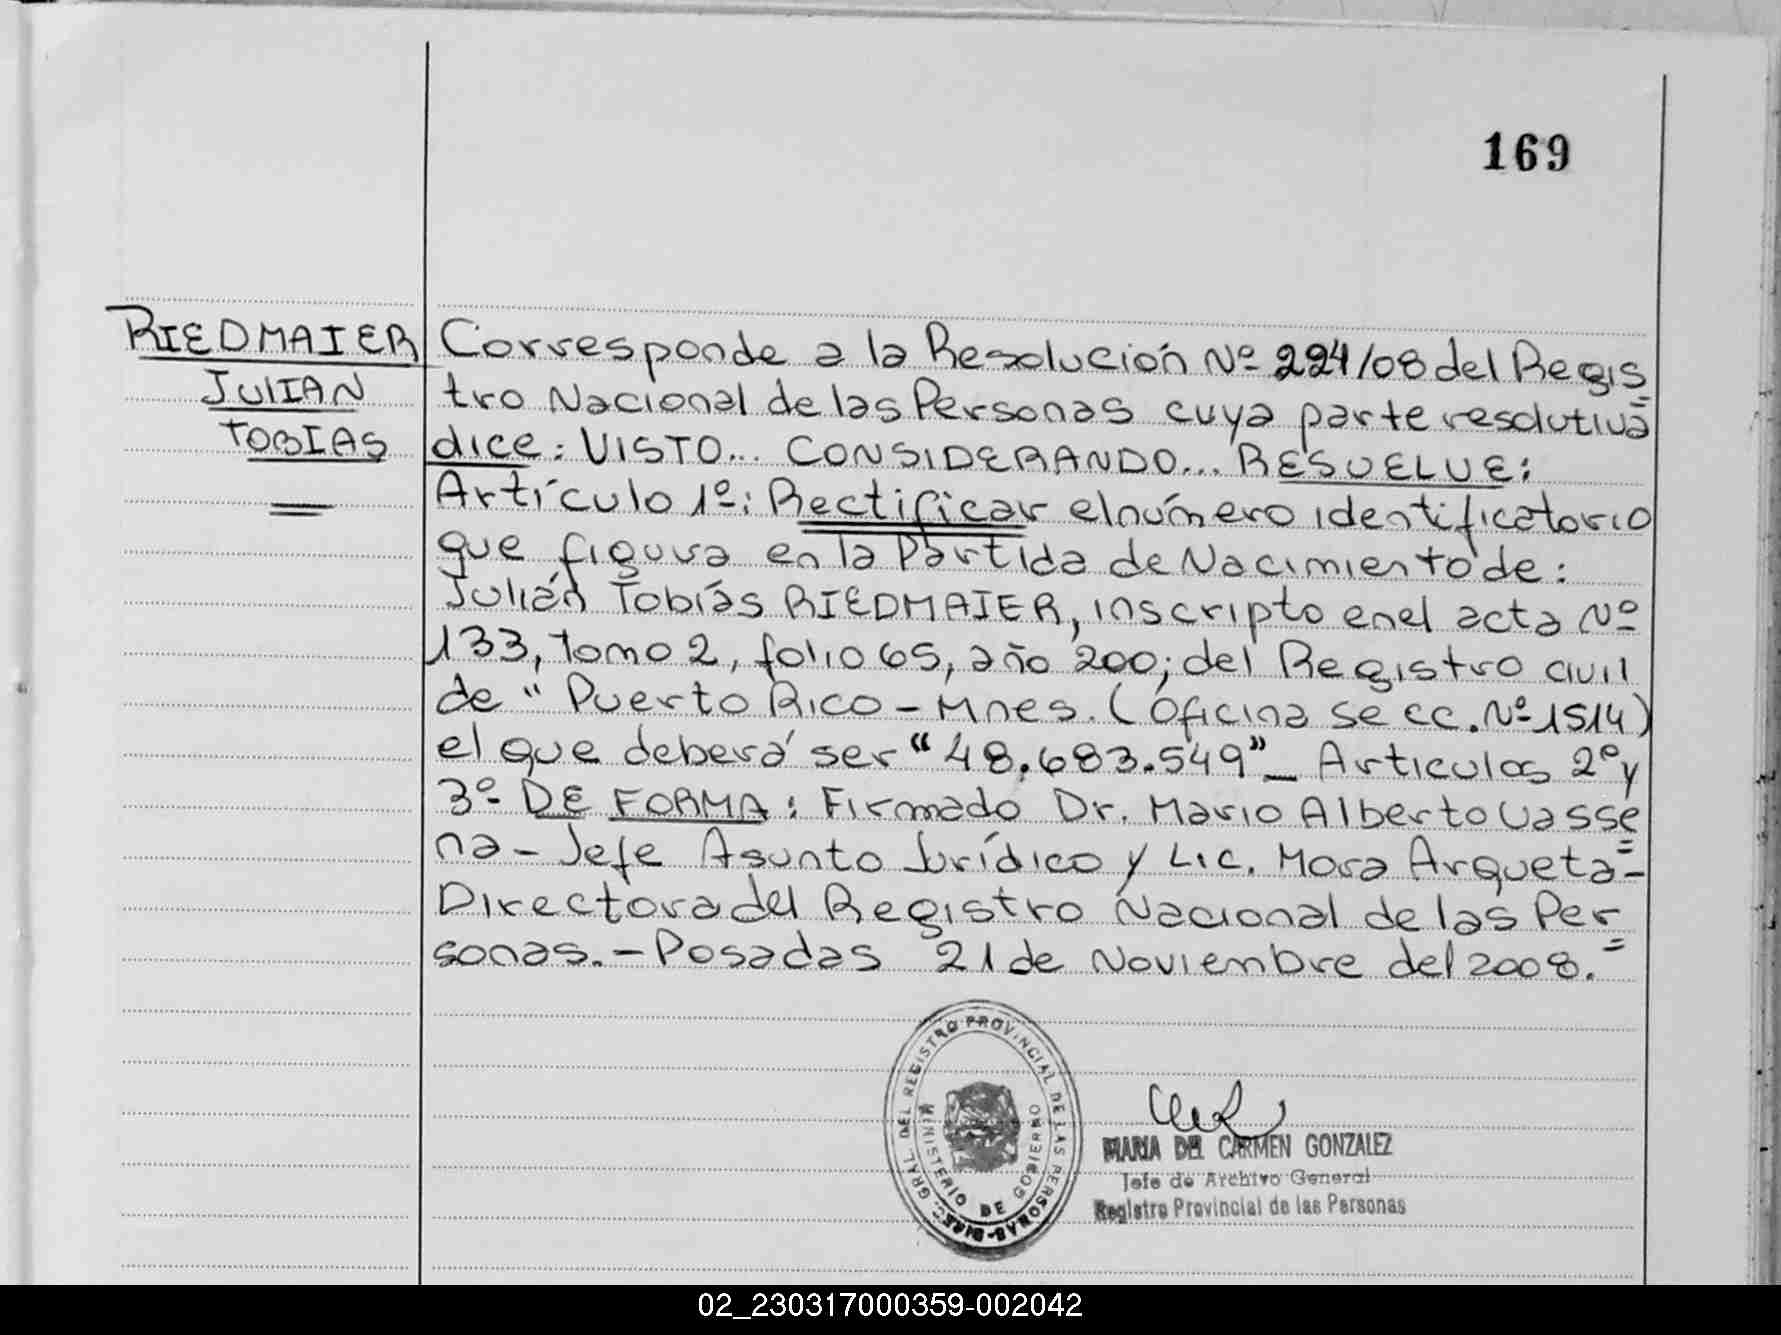 169
RIEDMAIER
JULIAN
TOBIAS
Corresponde a la Resolución Nº 224/08 del Regis
tro Nacional de las Personas cuya parte resolutiva
dice: VISTO... CONSIDERANDO... RESUELVE:
Artículo 1º: Rectificar el número identificatorio
que figura en la Partida de Nacimiento de:
Julián Tobías RIEDMAIER, inscripto en el acta Nº
133, Tomo 2, folio 65, año 200; del Registro civil
de " Puerto Rico - Mnes. (oficina secc. Nº 1514)
el que deberá ser "48.683.549" _ Articulos 2º y
3º DE FORMA: Firmado Dr. Mario Alberto Vasse
na - Jefe Asunto Jurídico y Lic. Mora Arqueta-
Directora del Registro Nacional de las Per
sonas. - Posadas 21 de Noviembre del 2008.
GRAL. DEL REGISTRO PROVINCIAL DE LAS PERSONAS
MINISTERIO DE GOBIERNO
MARIA DEL CARMEN GONZALEZ
Jefe de Archivo General
Registro Provincial de las Personas
02_230317000359-002042